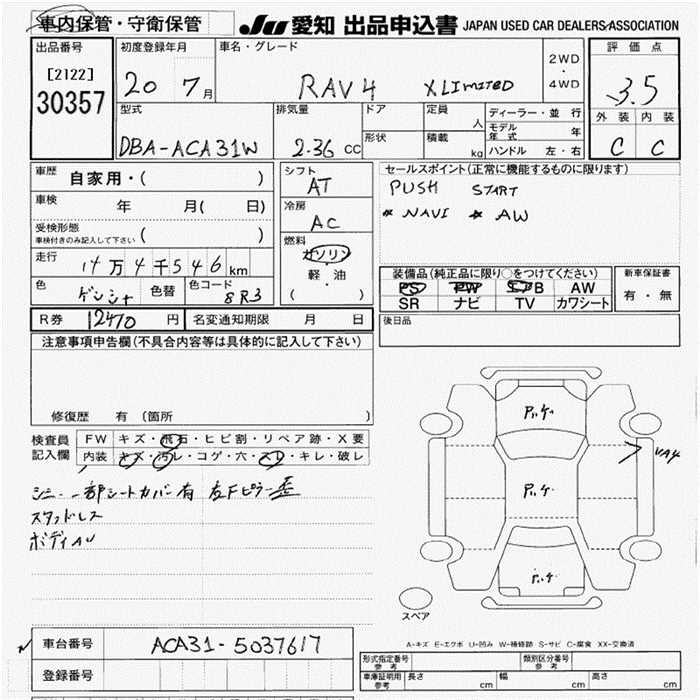 車内保管・守衛保管
JU 愛知 出品申込書 JAPAN USED CAR DEALERS ASSOCIATION
出品番号
[2122]
30357
初度登録年月
20 7月
車名・グレード
RAV4 X LIMITED
2WD
・
4WD
評価点
3.5
外装 内装
C C
型式
DBA-ACA31W
排気量
2.36 CC
ドア
形状
定員
人
積載
kg
ディーラー・並行
モデル年式 年
ハンドル 左・右
車歴
自家用・( )
車検
年 月( 日)
受検形態
車検付きのみ記入して下さい ( )
走行
14万4千546km
色
ゲンシャ
色替
色コード
8R3
シフト
AT
冷房
AC
燃料
ガソリン
・
軽・油
( )
セールスポイント(正常に機能するものに限ります)
PUSH START
* NAVI * AW
装備品(純正品に限り○をつけてください)
PS PW エアB AW
SR ナビ TV カワシート
新車保証書
有・無
後日品
R券 12470 円
名変通知期限 月 日
注意事項申告欄(不具合内容等は具体的に記入して下さい)
修復歴 有(箇所 )
検査員
記入欄
FW キズ・飛石・ヒビ割・リペア跡・X要
内装 キズ・汚レ・コゲ・穴・スレ・キレ・破レ
一部シートカバー有 左Fピラー歪
スタッドレス
ボディAU
スペア
A-キズ E-エクボ U-凹み W-補修跡 S-サビ C-腐食 XX-交換済
車台番号
ACA31-5037617
登録番号
形式指定番号
参考
類別区分番号
参考
車庫証明用
参考
長さ cm
幅 cm
高さ cm